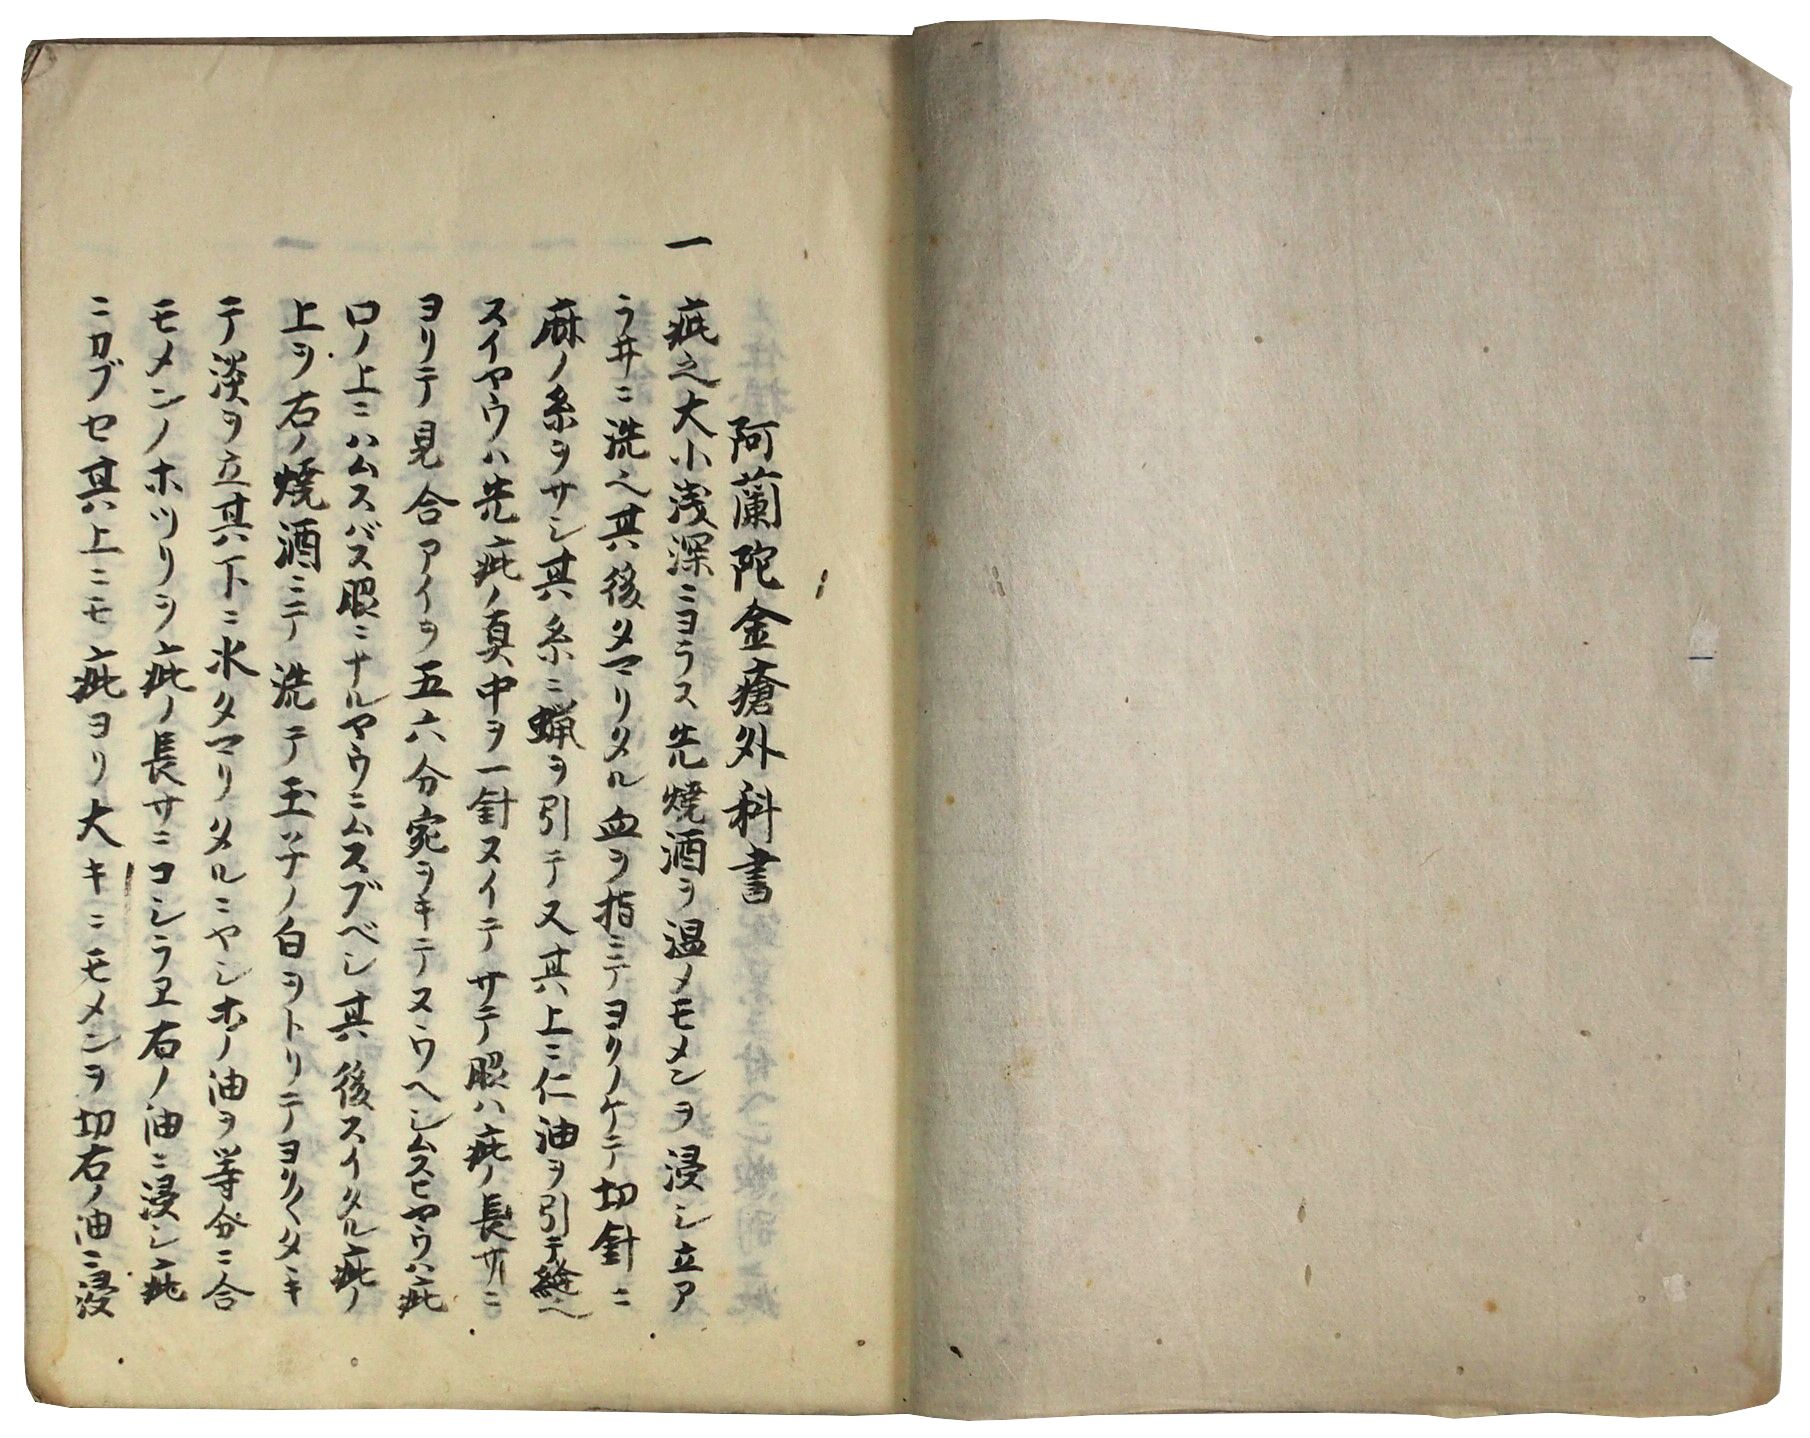 阿蘭陀金瘡外科書
一 疵之大小浅深ニヨラス先焼酒ヲ温メモメンヲ浸シ立ア
ラ井ニ洗之其後タマリタル血ヲ指ニテヨリノケテ切針ニ
麻ノ糸ヲサシ其糸ニ蝋ヲ引テス其上ニ仁油ヲ引テ縫ヘ
スイヤウハ先疵ノ真中ヲ一針スイテサテ眼ハ疵ノ長サニ
ヨリテ見合アイヲ五六分宛ヲキテスウヘシムスヒヤウハ疵
口ノ上ニハムスバス眼ニナルヤウニムスブベシ其後スイタル疵ノ
上ヲ右ノ焼酒ニテ洗テ玉子ノ白ヲトリテヨク〱タヽキ
テ淡ヲ立其下ニ水タマリタルニヤシホノ油ヲ等分ニ合
モメンノホツリヲ疵ノ長サニコシラヱ右ノ油ニ浸シ疵
ニカブセ其上ニモ疵ヨリ大キニモメンヲ切右ノ油ニ浸